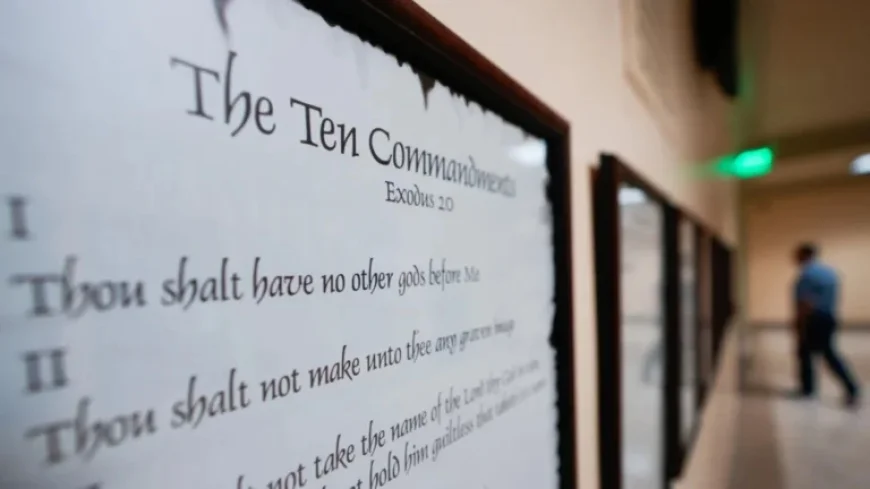 The Ten Commandments
Exodus 20
I
Thou shalt have no other gods before Me
II
Thou shalt not make unto thee any graven image
not take the name of the Lord thy God in
hold him guiltless that